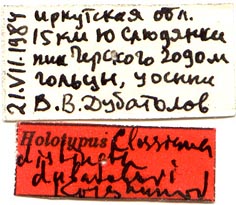 21.VII.1984
Иркутская обл.
15 км Ю Слюдянки
пик Черского 200 м
гольцы, у осыпи
В. В. Дубатолов
Holotypus Clossiana
distincta
dubatolovi
Korshunov